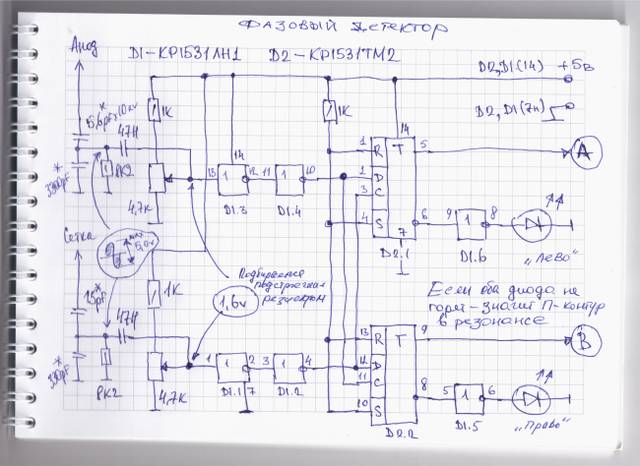 ФАЗОВЫЙ ДЕТЕКТОР
D1-КР1531ЛН1 D2-КР1531ТМ2
Анод
D2,D1(14) +5в
D2,D1(7н)
5,6pF×10кv
*
47Н
1К
1К
3300pF
*
РК2
4,7К
13 14 1 12 11 1 10
D1.3 D1.4
14
1 R T 5
2 D
3 C
4 S 6
7
D2.1
A
9 1 8
D1.6
„Лево"
max
5,0v
Сетка
15pF
*
47Н
1К
330pF
*
РК2
4,7К
Подбирается
подстроечным
резистором
1,6v
Если оба диода не
горят - значит П-контур
в резонансе
1 1 2 3 1 4
D1.1 7 D1.2
13 R T 9
12 D
11 C
10 S 8
D2.2
B
5 1 6
D1.5
„Право"